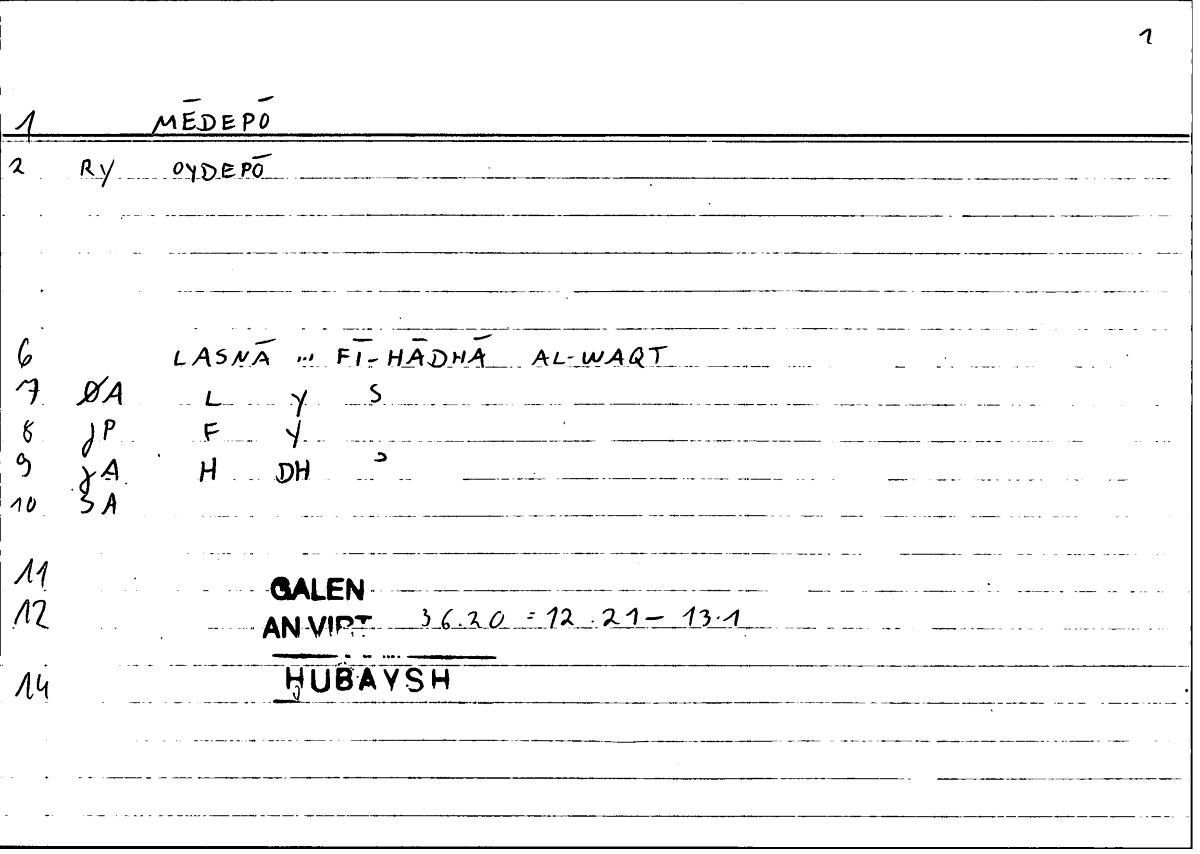 1
1 MĒDEPŌ
2 RY OYDEPŌ
6 LASNĀ ... FĪ-HĀDHĀ AL-WAQT
7 ØA L Y S
8 JP F Y
9 JA H DH ʾ
10 3A
11 GALEN
12 AN VIRT 36.20 = 12.21 - 13.1
14 ḤUBAYSH